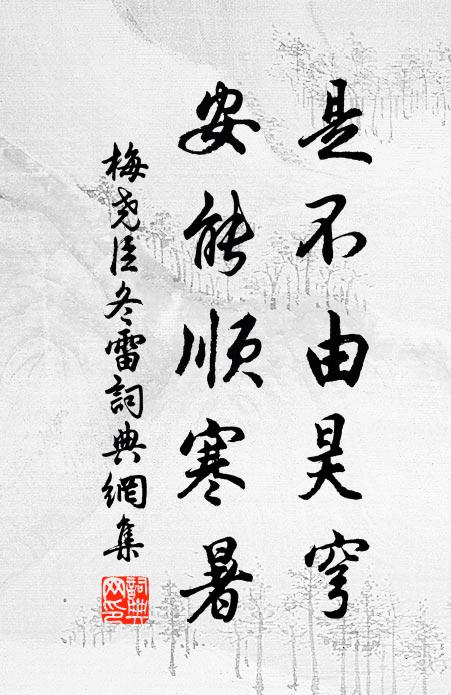 是不由昊穹
安能順寒暑
梅堯臣冬雷詞典網集
詞典网印